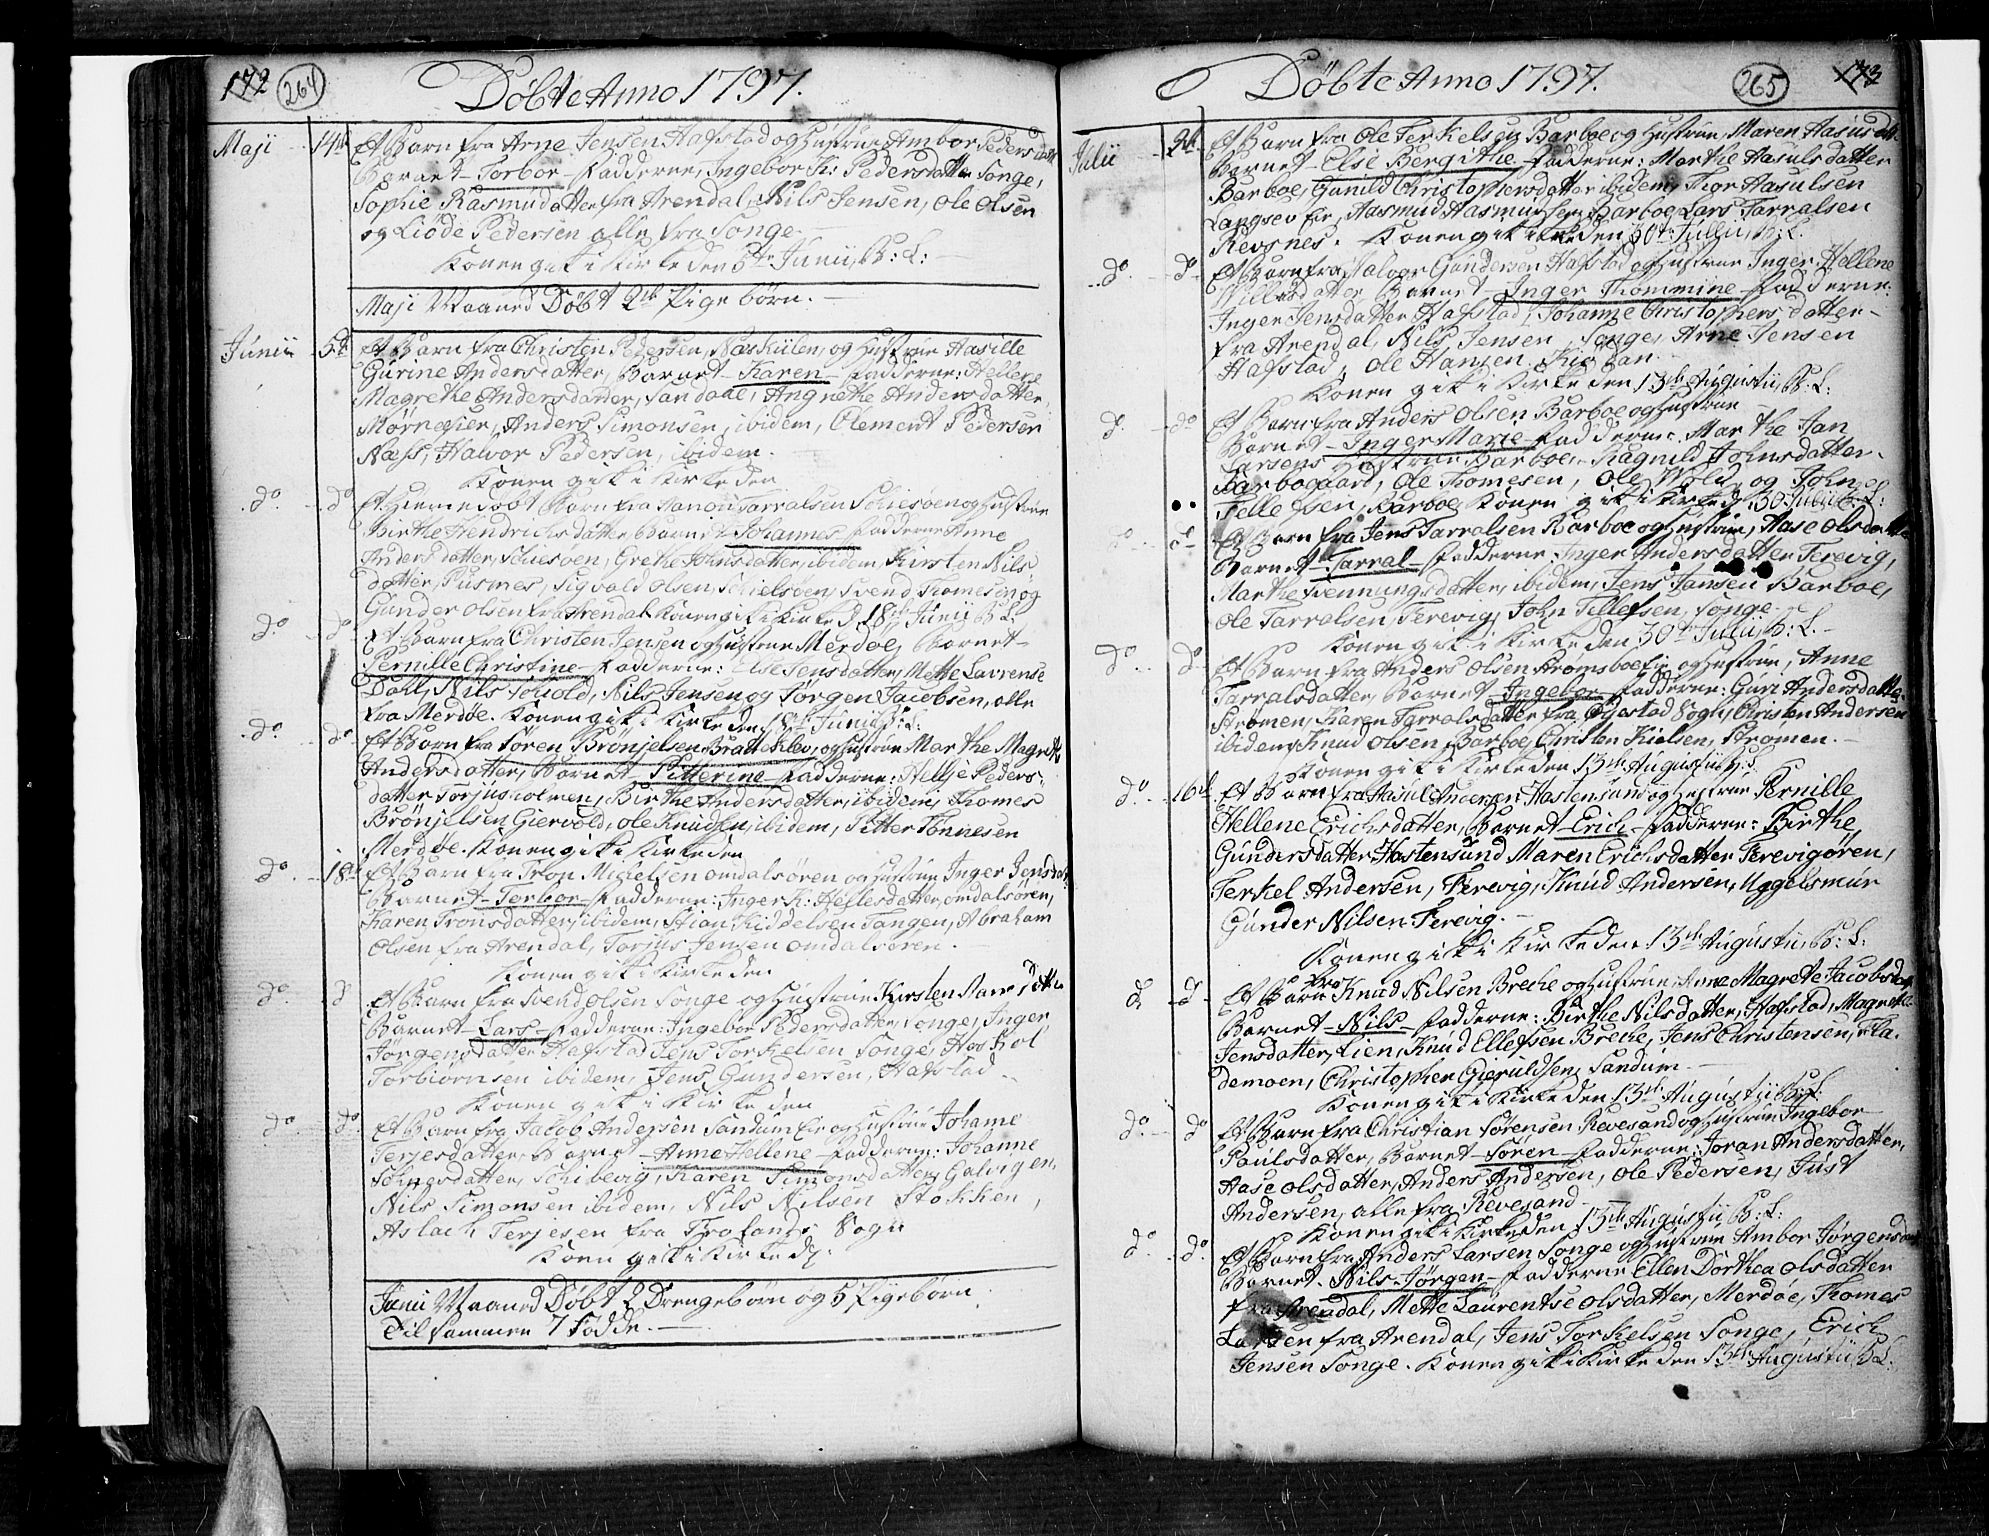 172 264 Döbte Anno 1797.
Maji 14de Et Barn fra Arne Jensen Hafstad og Hustrue Ambor Pedersdatt
Barnet Torbor Fadderne, Ingebor K: Pedersdatter Songe,
Sophie Rasmusdatter fra Arendal, Nils Jensen, Ole Olsen
og Liöde Pedersen alle fra Songe.
Konen gik i Kirke den 5te Junii, B: L:
Maji Maaned Döbt 2de Pigebörn.
Junii 5te Et Barn fra Christen Pedersen, Naskiilen, og Hustrue Aasille
Gurine Andersdatter, Barnet Karen Fadderne: Hellene
Magrethe Andersdatter, Sandaae, Angnethe Andersdatter,
Mörnesier, Anders Simonsen, ibidem, Clement Pedersen
Næss, Halvor Pedersen, ibidem.
Konen gik i Kirke den
do. do Et Hiemmedöbt Barn fra Hanon Tarralsen Schiesöen og Hustrue
Birthe Hendrichsdatter, Barnet Johannes Fadderne Anne
Andersdatter, Schiesöen, Grethe Johnsdatter, ibidem, Kirsten Nils
datter, Pusnes, Sigvald Olsen Schielsöen, Svend Thomesen og
Gunder Olsen fra Arendal Konen gik i Kirke d 18de Junii B: L:
do. do Et Barn fra Christen Jensen og Hustrue Merdöe, Barnet
Pernille Christine Fadderne: Else Jensdatter, Mette Lavrense
Dahl, Nils Schold, Nils Jensen og Jörgen Jacobsen, alle
fra Merdöe. Konen gik i Kirke den 18de Junii B: L:
do. do Et Barn fra Sören Brönjelsen Bratteklev, og Hustrue Marthe Magrete
Andersdatter, Barnet Pitterine Fadderne: Hellje Peders-
datter Torjusholmen, Birthe Andersdatter, ibidem, Thomes
Brönjelsen Giervold, Ole Knudsen, ibidem, Pitter Tönnesen
Merdöe. Konen gik i Kirke den
do. 18de Et Barn fra Tron Michelsen Omdalsören og Hustrue Inger Jensdat.
Barnet Terbor Fadderne: Inger K: Hellesdatter, Omdalsören,
Karen Tronsdatter, ibidem, Stian Kiddelsen Tangen, Abraham
Olsen fra Arendal, Torjus Jensen Omdalsören.
Konen gik i Kirke den
do. do Et Barn fra Svend Olsen Songe og Hustrue Kirsten datter
Barnet Lars Fadderne: Ingebor Pedersdatter, Songe, Inger
Jörgensdatter Hafstad, Jens Torkelsen Songe,
Torbiörnsen ibidem, Jens Gundersen, Hafstad
Konen gik i Kirke den
do. do. Et Barn fra Jacob Andersen Sandum Eie og Hustrue Johanne
Terjesdatter, Barnet Anne Hellene Fadderne: Johanne
Johnesdatter, Schibevig, Karen Simonsdatter, Galvigen,
Nils Simonsen ibidem, Nils Nilsen Stokken,
Aslach Terjesen fra Frolands Sogn
Konen gik i Kirke d.
Junii Maaned Döbt 2 Drengebörn og 5 Pigebörn
Tilsammen 7 Födde.
Döbte Anno 1797. 265 173
Julii 2de Et Barn fra Ole Terkelsen Barboe og Hustrue, Maren Aasulsdat
Barnet Else Bergithe Fadderne: Marthe Aasulsdatter
Barboe, Gunild Christophersdatter ibidem, Thor Aasulsen
Langsev Eie, Aasmud Aasmudsen Barboe, Lars Tarralsen
Revsnes. Konen gik i Kirke den 30te Julii, B: L:
do. do Et Barn fra Halvor Gundersen Hafstad og Hustrue Inger Hellene
Nillesdatter, Barnet Inger Thommine Fadderne:
Inger Jensdatter Hafstad, Johanne Christophersdatter
fra Arendal, Nils Jensen, Songe, Arne Jensen
Hafstad, Ole Hansen
Konen gik i Kirke den 13de Augustii, B: L:
d. do Et Barn fra Anders Olsen Barboe og Hustrue
Barnet Inger Marie Fadderne: Marthe Jan
Larsens Hustrue Barboe, Ragnild Johnsdatter
Barbogaard, Ole Thomesen, Ole Wold, og John
Tellefsen, Barboe, Konen gik i Kirke d. 30 Julii B: L:
do. d. Et Barn fra Jens Tarralsen Barboe og Hustrue, Aase Olsdatte
Barnet Tarral Fadderne, Inger Andersdatter Terevig,
Marthe Henningsdatter, ibidem, Jens Jansen Barboe,
Ole Tarralsen, Terevig, John Tellefsen, Songe
Konen gik i Kirke den 30te Julii, B: L:
do. do Et Barn fra Anders Olsen Stromsboe Eie og Hustrue, Anne
Tarralsdatter, Barnet Ingebor Fadderne: Guri Andersdatter
Strömen, Karen Tarralsdatter fra Öjestad Sogn, Christen Andersen
ibidem, Knud Olsen, Barboe, Christen Kielsen, Stromen.
Konen gik i Kirke den 13de Augustii B: L:
do. 16de Et Barn fra Aasul Andersen Hastensund og Hustrue Pernille
Hellene Erichsdatter, Barnet Erich Fadderne: Birthe
Gundersdatter Hastensund, Maren Erichsdatter Terevigören,
Terkel Andersen, Terevig, Knud Andersen, Uggelsmur
Gunder Nilsen Terevig.
Konen gik i Kirke den 13de Augustii, B: L:
d. d. Et Barn fra Knud Nilsen Breche og Hustrue Anne Magrete Jacobsdatt
Barnet Nils Fadderne: Birthe Nilsdatter, Hafstad, Magrethe
Jensdatter, Lien, Knud Ellefsen Breche, Jens Christensen, Fla-
demoen, Christopher Gieruldsen, Sandum.
Konen gik i Kirke den 13de Augustii B: L:
do. do Et Barn fra Christian Sörensen Revesand og Hustrue Ingebor
Paulsdatter, Barnet Sören Fadderne: Joran Andersdatter,
Aase Olsdatter, Anders Andersen, Ole Pedersen, Just
Andersen, alle fra Revesand
Konen gik i Kirke den 13de Augustii B: L:
do. do. Et Barn fra Anders Larsen Songe og Hustrue Ambor Jörgensdat
Barnet Nils Jörgen Fadderne Ellen Dorthea Olsdatter
fra Arendal, Mette Laurentse Olsdatter, Merdöe, Thomes
Larsen fra Arendal, Jens Torkelsen Songe, Erich
Jensen Songe. Konen gik i Kirke den 13de Augustii, B: L: